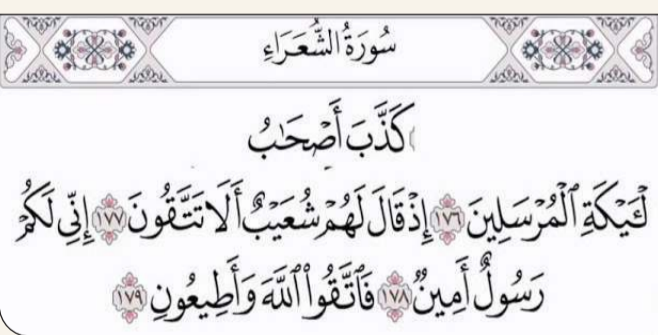 سُورَةُ الشُّعَرَاءِ
كَذَّبَ أَصْحَٰبُ
لْـَٔيْكَةِ ٱلْمُرْسَلِينَ ١٧٦ إِذْ قَالَ لَهُمْ شُعَيْبٌ أَلَا تَتَّقُونَ ١٧٧ إِنِّي لَكُمْ
رَسُولٌ أَمِينٌ ١٧٨ فَٱتَّقُوا۟ ٱللَّهَ وَأَطِيعُونِ ١٧٩